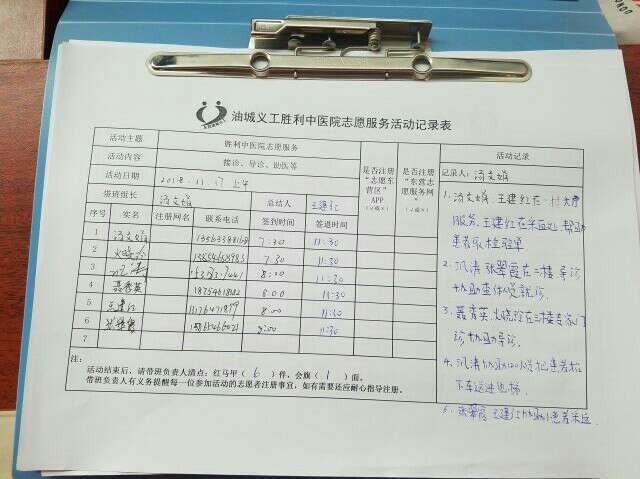 油城义工胜利中医院志愿服务活动记录表
活动主题 胜利中医院志愿服务
活动内容 接诊、导诊、助医等
活动日期 2018.11.17 上午
带班组长 汤文娟 总结人 王建红
是否注册“志愿东营区”APP（√或×）
是否注册“东营志愿服务网”（√或×）
序号 实名 注册网名 联系电话 签到时间 签退时间
1 汤文娟 7:30 11:30
2 7:30 11:30
3 8:00 11:30
4 聂秀英 8:00 11:30
5 王建红 8:00 11:30
6 张翠霞 8:00 11:30
7
注：
活动结束后，请带班负责人清点：红马甲（ 6 ）件，会旗（ 1 ）面。
带班负责人有义务提醒每一位参加活动的志愿者注册事宜，如有需要还应耐心指导注册。
活动记录
记录人：汤文娟
1、汤文娟、王建红在一楼大厅
服务，王建红在采血处帮助
患者取检验单
张翠霞在二楼导诊
3、聂秀英、
诊协助导诊
下车送进
5、张翠霞、王建红协助患者采血